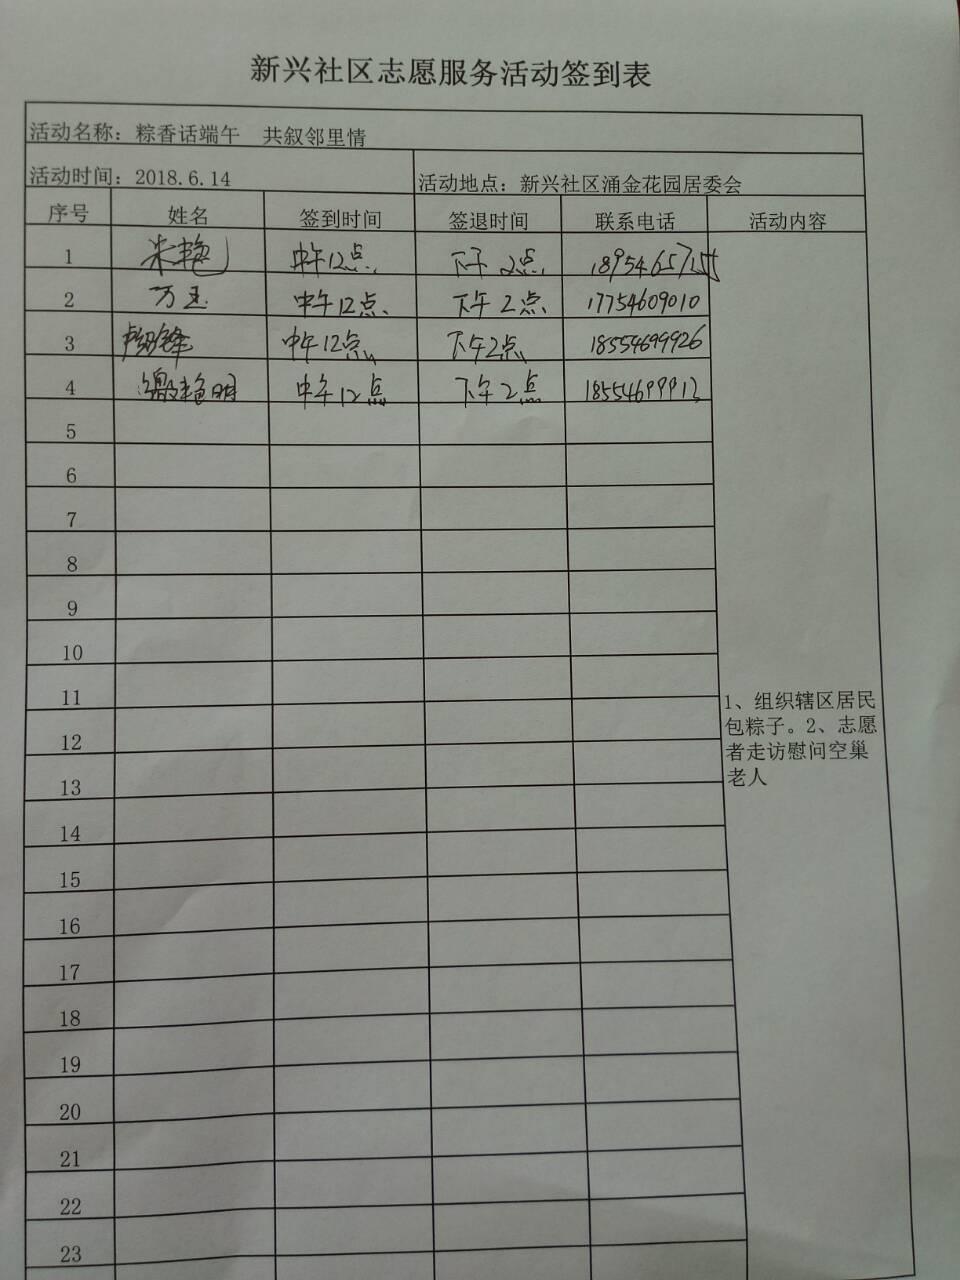 新兴社区志愿服务活动签到表
活动名称：粽香话端午 共叙邻里情
活动时间：2018.6.14 活动地点：新兴社区涌金花园居委会
序号 姓名 签到时间 签退时间 联系电话 活动内容
1 朱艳 中午12点 下午2点 18954657155
2 万玉 中午12点 下午2点 17754609010
3 中午12点 下午2点 18554699926
4 艳明 中午12点 下午2点 18554699913
5
6
7
8
9
10
11
12
13
14
15
16
17
18
19
20
21
22
23
1、组织辖区居民
包粽子。2、志愿
者走访慰问空巢
老人